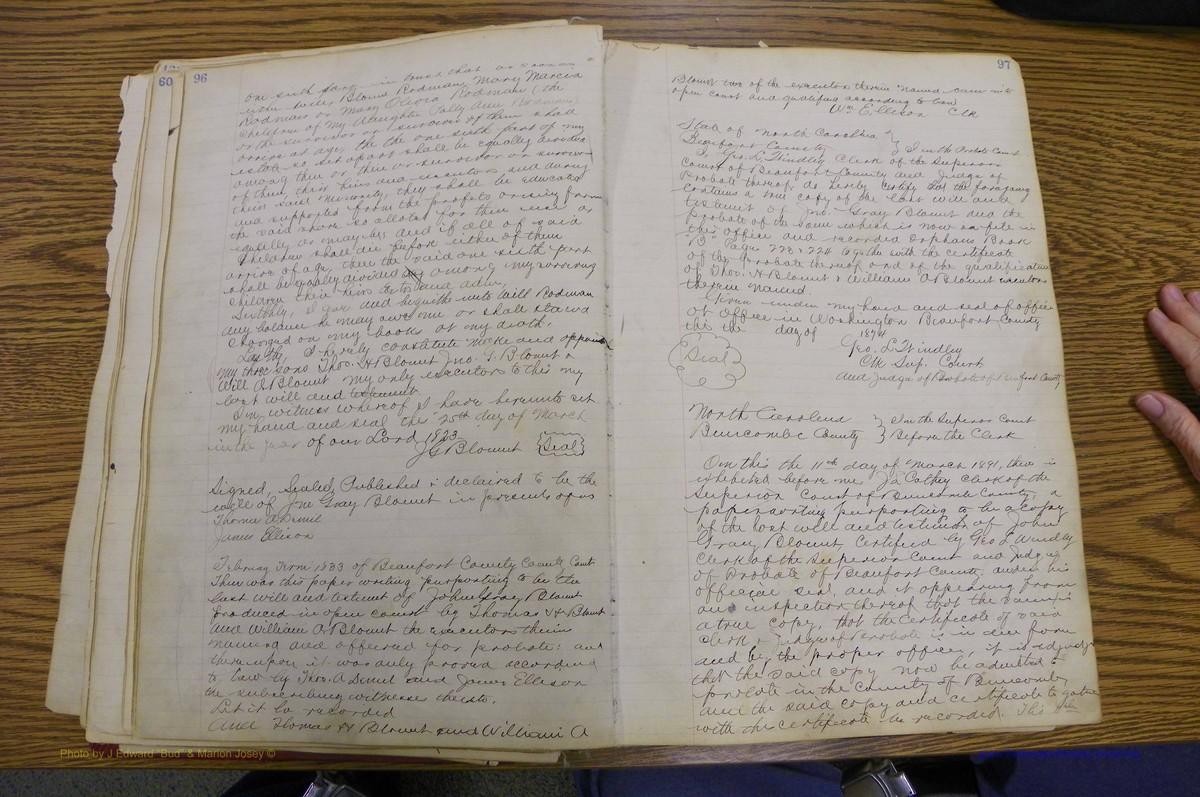 60
96
one sixth part
Rodman or Mary Olivia Rodman (the
children of my daughter Polly Ann Rodman)
or the survivor or survivors of them shall
arrive at age, the the one sixth part of my
estate so set apart shall be equally divided
among them or their survivor or survivors
of them, their heirs and executors and during
their said minority they shall be educated
and supported from the profits arising from
the said share so alloted for their use as
equally as may be; and if all of said
Children shall die before either of them
arrive of age, then the said one sixth part
shall be equally divided among my surviving
children their heirs and adm.
Sixthly, I give and bequithe unto Will Rodman
any balance he may owe me or shall stand
charged on my books at my death.
Lastly, I hereby constitute make and appoint
my three sons Thos. H Blount Jno. G. Blount &
Will A Blount my only executors to this my
last will and testament
In witness whereof I have hereunto set
my hand and seal the 25th day of March
in the year of our Lord 1823
J G Blount {Seal}
Signed, Sealed, Published & declaired to be the
will of Jno Gray Blount in presends of us
Thomas A Demil
James Ellison
February Term 1833 of Beaufort County County Court
Then was this paper writing purporting to be the
last will and testament of John Gray Blount
produced in open court by Thomas H Blount
and William A Blount the executors therin
named and offered for probate: and
thereupon it was duly proved according
to law by Thos. A Demil and James Ellison
the subscribing witnesse thereto.
Let it be recorded
And Thomas H Blount and William A
Photo by J Edward "Bud" & Marion Josey ©
97
Blount two of the executors therein named came into
open court and qualified according to law
Wm Ellison Clk
State of North Carolina }
Beaufort County } In the Probate Court
I, Geo. L Windley Clerk of the Superior
Court of Beaufort County and Judge of
Probate thereof, do hereby certify that the foregoing
contains a true copy of the last will and
testament of Jno. Gray Blount and the
probate of the same which is now on file in
this office and recorded Orphans Book
"B" Pages 223 & 224 together with the certificate
of the probate thereof and of the qualification
of Thos. H Blount & William A Blount executors
therein named.
Given under my hand and seal of office
at office in Washington Beaufort County
this the day of 1891
Geo. L Windley
Clk Sup. Court
and Judge of Probate of Beaufort County
Seal
North Carolina } In the Superior Court
Buncombe County } Before the Clerk
On this the 11th day of March 1891, there is
exhibited before me, J L Cathey clerk of the
Superior Court of Buncombe County, a
paper writing purporting to be a copy
of the last will and testiment of John
Gray Blount, certified by Geo L Windley
Clerk of the Superior Court and Judge
of Probate of Beaufort County, under his
official seal, and it appearing from
an inspection thereof that the same is
a true copy, that the certificate of said
clerk & Judge of Probate is in due form
and by the proper officer, it is adjudged
that the said copy now be admitted to
probate in the County of Buncombe,
and the said copy and certificate together
with this certificate be recorded. This